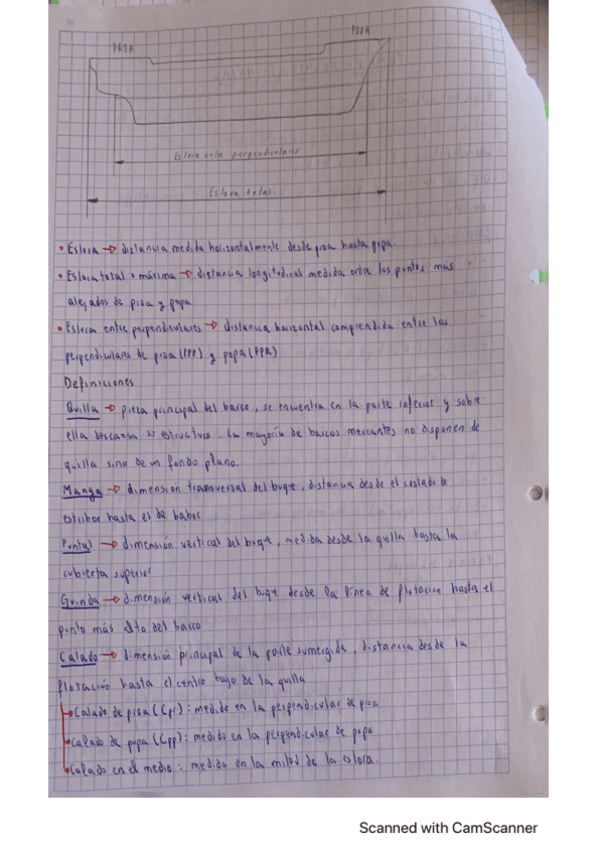 PROA
POPA
Eslora entre perpendiculares
Eslora total
• Eslora → distancia medida horizontalmente desde proa hasta popa.
• Eslora total o máxima → distancia longitudinal medida entre los puntos más
alejados de proa y popa
• Eslora entre perpendiculares → distancia horizontal comprendida entre las
perpendiculares de proa (PPP) y popa (PPR)
Definiciones
Quilla → pieza principal del barco, se encuentra en la parte inferior y sobre
ella descansa su estructura. La mayoría de barcos mercantes no disponen de
quilla sino de un fondo plano.
Manga → dimension transversal del buque, distancia desde el costado de
estribor hasta el de babor
Puntal → dimensión vertical del buque, medida desde la quilla hasta la
cubierta superior
Guinda → dimensión vertical del buque desde la línea de flotacion hasta el
punto más alto del barco
Calado → dimensión principal de la parte sumergida, distancia desde la
flotación hasta el centro bajo de la quilla
→ Calado de proa (Cpr): medido en la perpendicular de proa
→ Calado de popa (Cpp): medido en la perpendicular de popa
→ Calado en el medio: medido en la mitad de la eslora.
Scanned with CamScanner